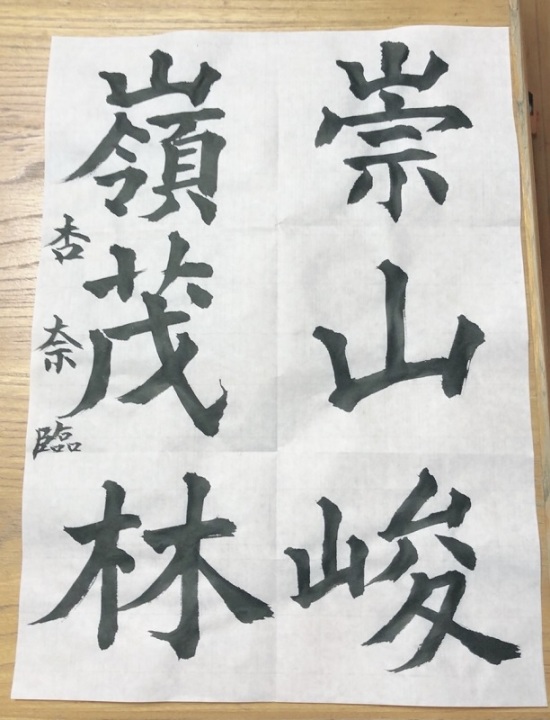 崇山峻
嶺茂林
杏奈臨